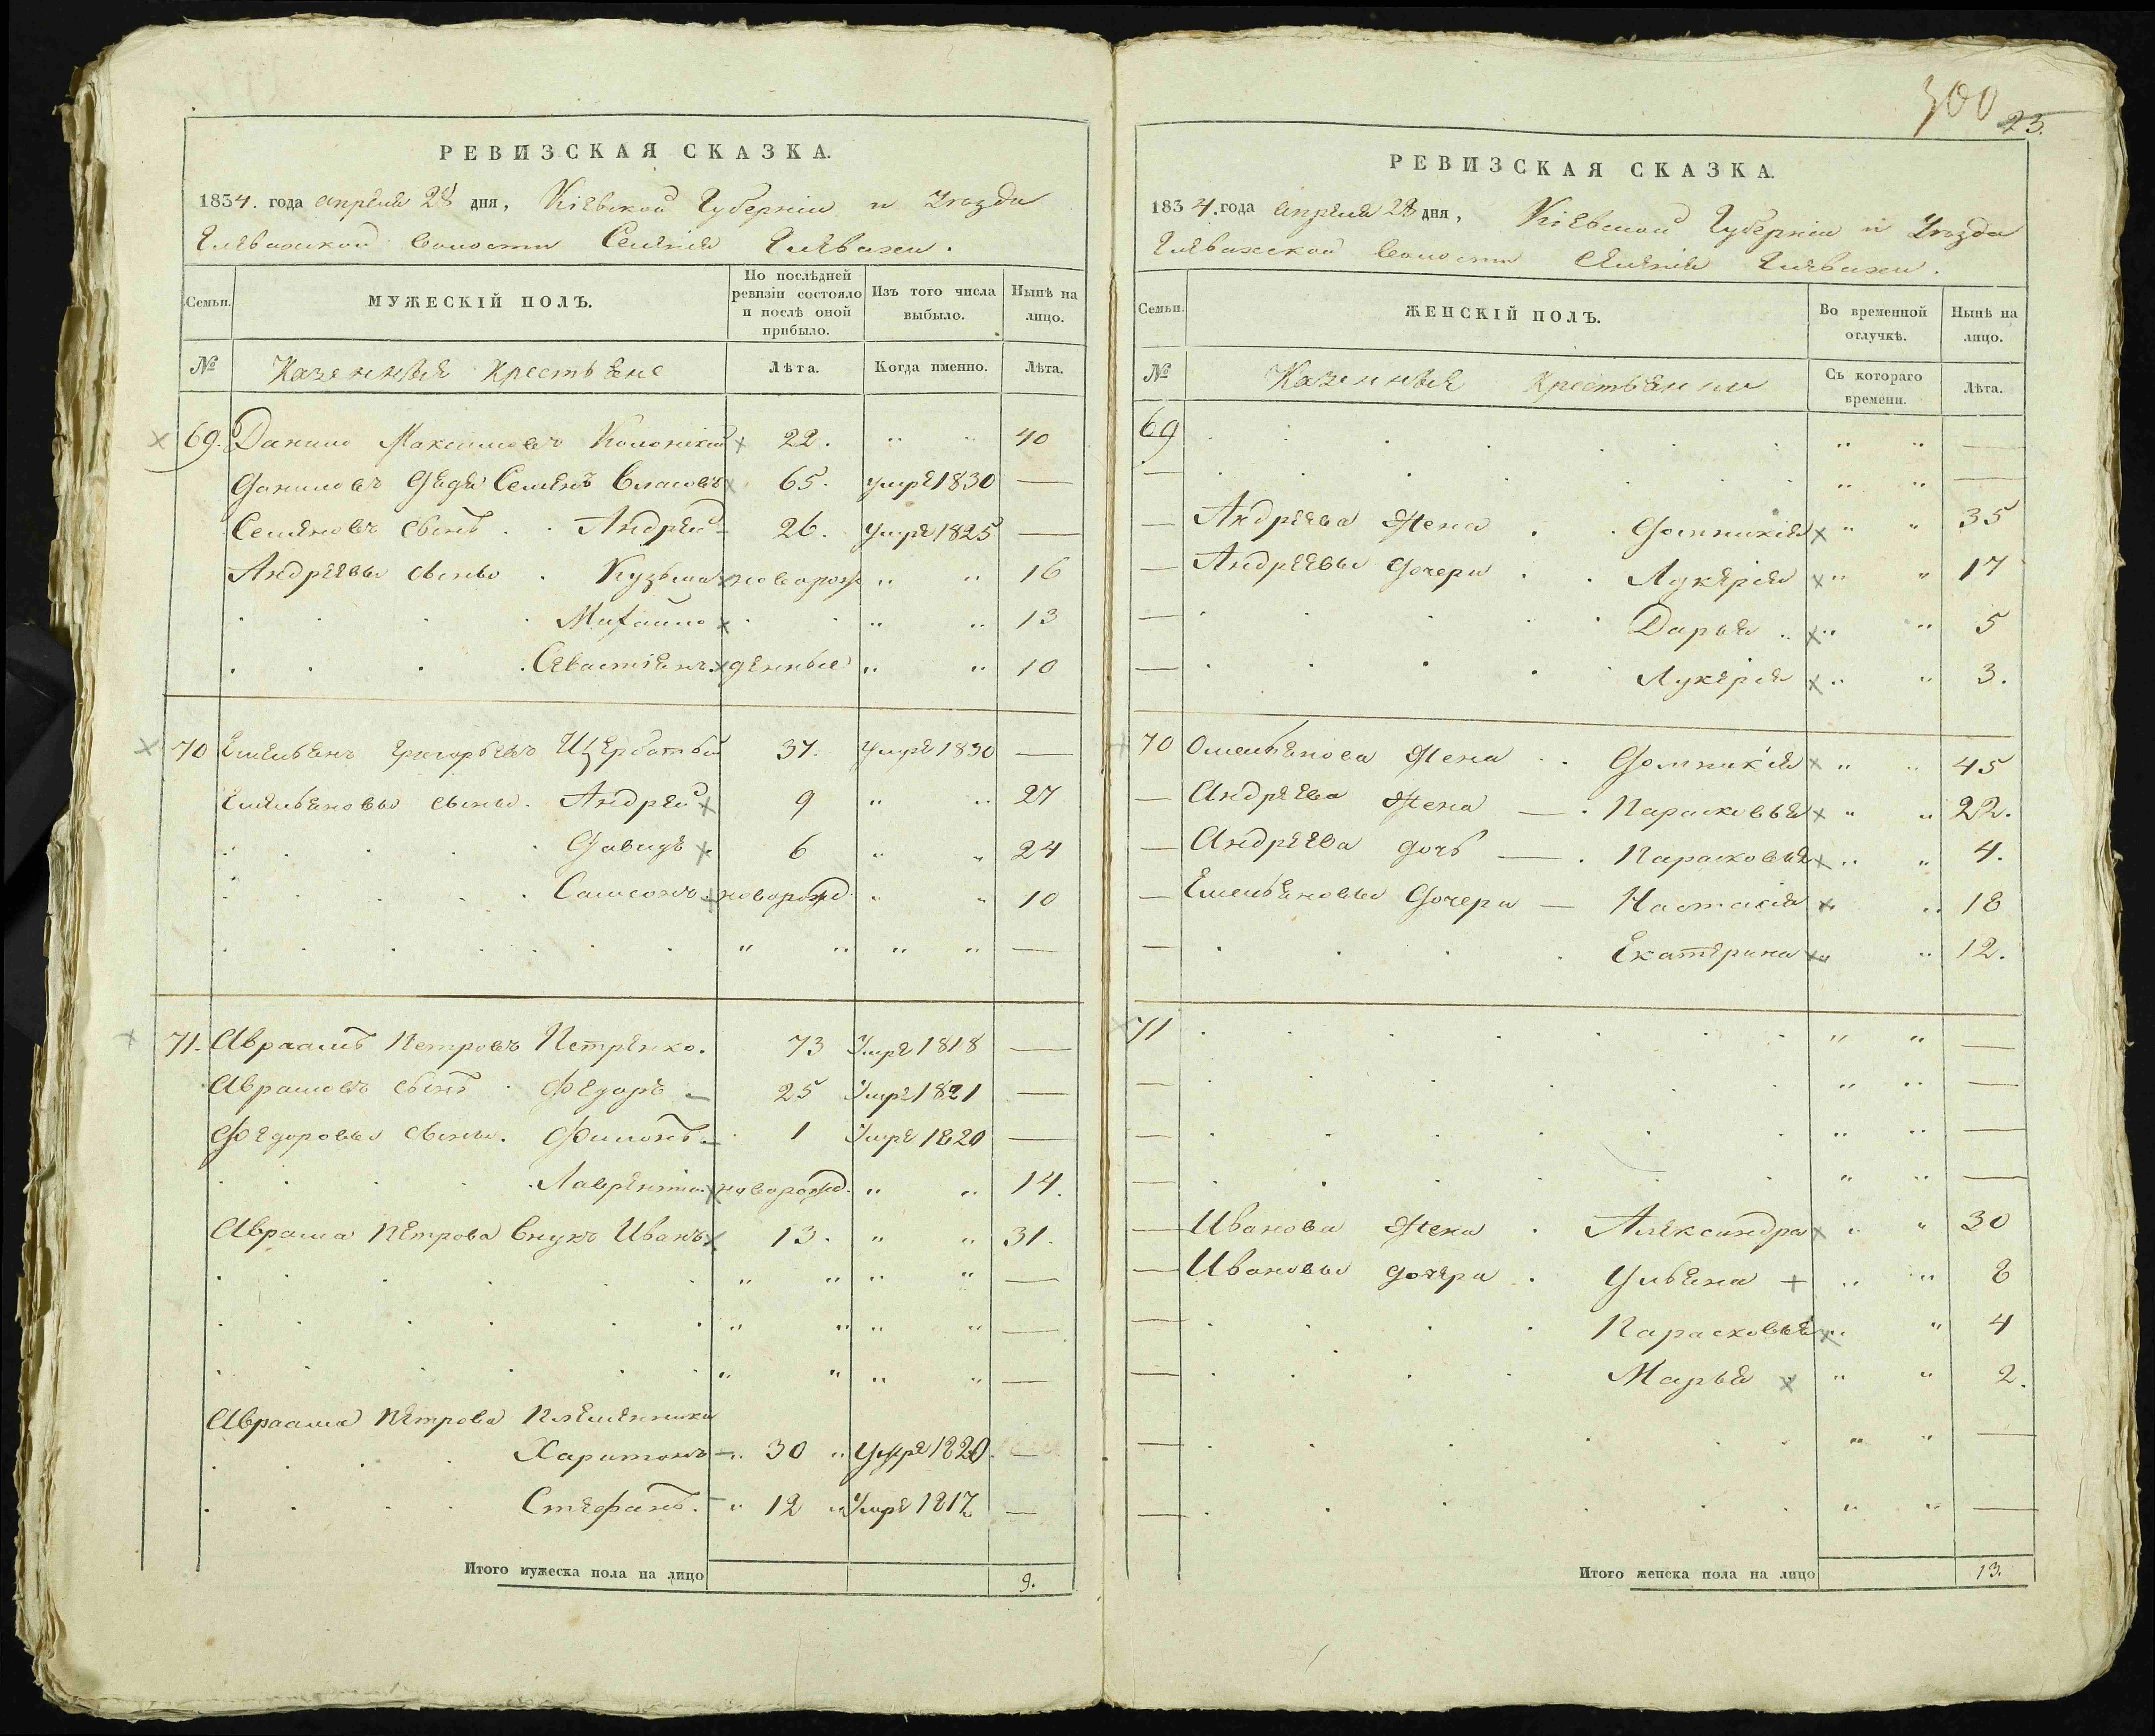 РЕВИЗСКАЯ СКАЗКА.
1834. года апреля 28 дня, Кіевской Губерніи и Уезда
Глевахской Волости Селенія Глевахи.
Семьи.
МУЖЕСКІЙ ПОЛЪ.
По послѣдней ревизіи состояло и послѣ оной прибыло.
Изъ того числа выбыло.
Нынѣ на лицо.
№ Казенныя крестьяне Лѣта. Когда именно. Лѣта.
69. Данило Максимовъ 22. " " 40
Даниловъ дядя Семенъ Власовъ 65. умре 1830 —
Семеновъ сынъ . . Андрей 26. умре 1825 —
Андреевы сыны . Кузьма новорож " " 16
Михайло " " 13
Севастіянъ. денные " " 10
70 Емельянъ Григорьевъ Щербатый 37. умре 1830 —
Емельяновы сыны. Андрей 9 " " 27
Давидъ 6 " " 24
Самсонъ новорожд " " 10
" " " " —
71. Авраамъ Петровъ Петренко. 73 Умре 1818 —
Авраамовъ сынъ . Федоръ 25 Умре 1821 —
Федоровы сыны. Филонъ 1 Умре 1820 —
Лаврентій новорожд. " " 14.
Авраама Петрова внукъ Иванъ 13. " " 31.
" " " " —
" " " " —
" " " " —
Авраама Петрова племенники
Харитонъ " 30 " Умре 1820 —
Стефанъ. " 12 " Умре 1817 —
Итого мужеска пола на лицо 9.
300
23.
РЕВИЗСКАЯ СКАЗКА.
1834. года апреля 28 дня, Кіевской Губерніи и Уезда
Глевахской Волости Селенія Глевахи.
Семьи.
ЖЕНСКІЙ ПОЛЪ.
Во временной отлучкѣ.
Нынѣ на лицо.
№ Казенныя крестьянки Съ котораго времени. Лѣта.
69 " " —
— " " —
— Андреева жена . . Домникія " " 35
— Андреевы дочери . . Лукерія " " 17
— Дарья " " 5
— Лукерія " " 3.
70 Омельянова жена . . Домникія " " 45
— Андреева жена — . Парасковья " " 22.
— Андреева дочь — . Парасковья " " 4.
— Емельяновы дочери — Настасія " " 18
— Екатерина " " 12.
71 " " —
— " " —
— " " —
— " " —
— Иванова жена . Александра " " 30
— Ивановы дочери . Ульяна " " 8
— Парасковья " " 4
— Марья " " 2.
— " " —
— " " —
Итого женска пола на лицо 13.